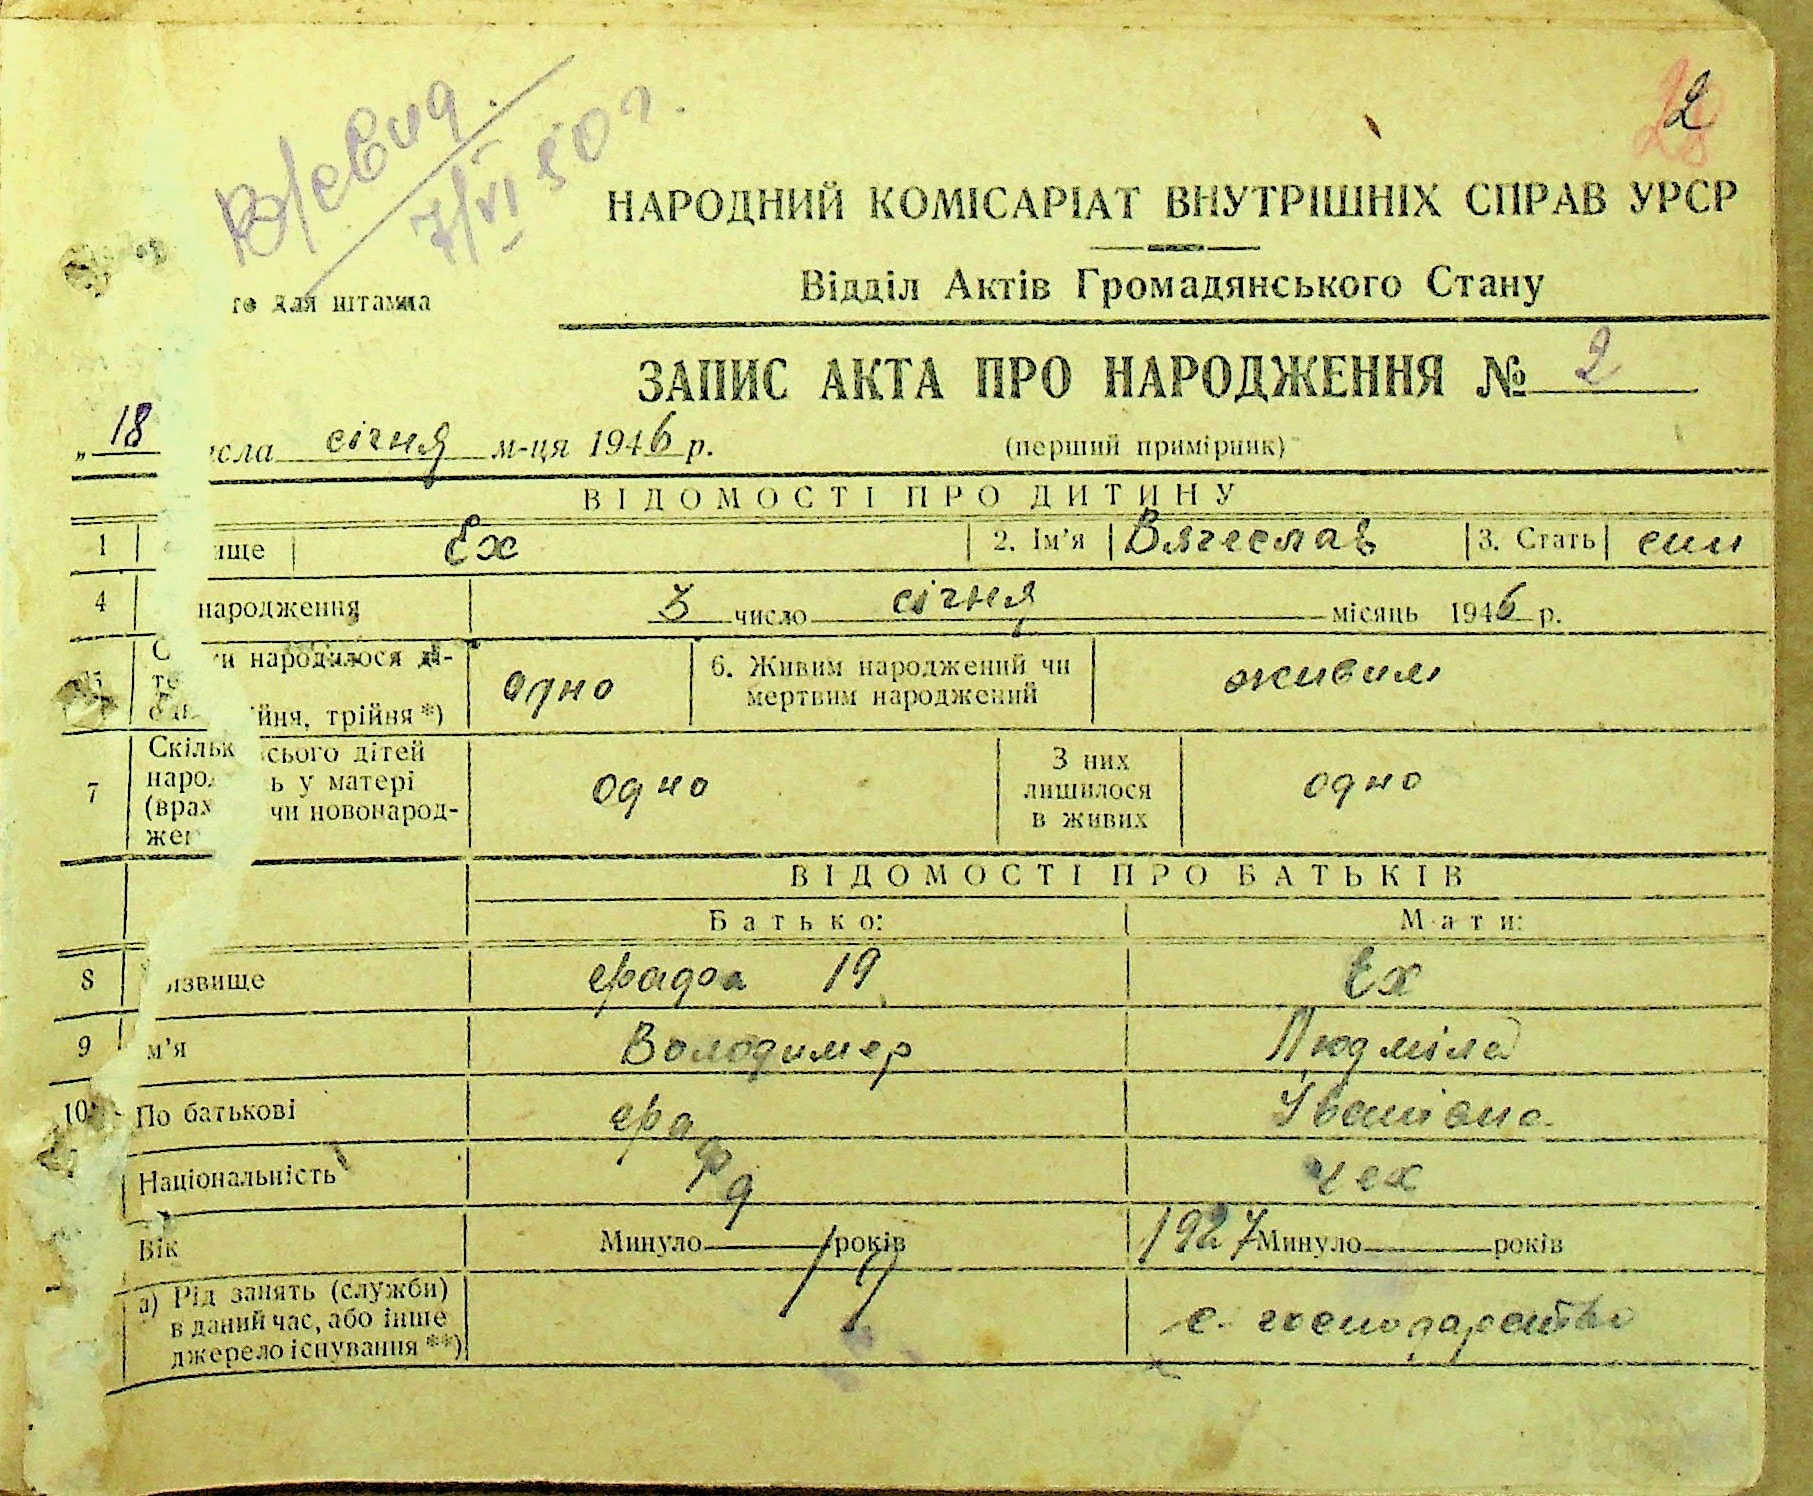 7/VI 50 г.
2
НАРОДНИЙ КОМІСАРІАТ ВНУТРІШНІХ СПРАВ УРСР
Відділ Актів Громадянського Стану
для штампа
ЗАПИС АКТА ПРО НАРОДЖЕННЯ № 2
„ 18 исла січня м-ця 1946 р. (перший примірник)
ВІДОМОСТІ ПРО ДИТИНУ
1 ище Ех 2. Ім'я Вячеслав 3. Стать син
4 народження 3 число січня місяць 1946 р.
5 народилося ді-
йня, трійня *) одно 6. Живим народжений чи мертвим народжений живим
7 Скільк сього дітей
наро ь у матері
(врах чи новонарод-
жен одно З них лишилося в живих одно
ВІДОМОСТІ ПРО БАТЬКІВ
Батько: Мати:
8 ізвище 19 Ех
9 м'я Володимер Людміла
10 По батькові Іванівна
Національність чех
Вік Минуло років 1927 Минуло років
а) Рід занять (служби)
в даний час, або інше
джерело існування **) с. господарство